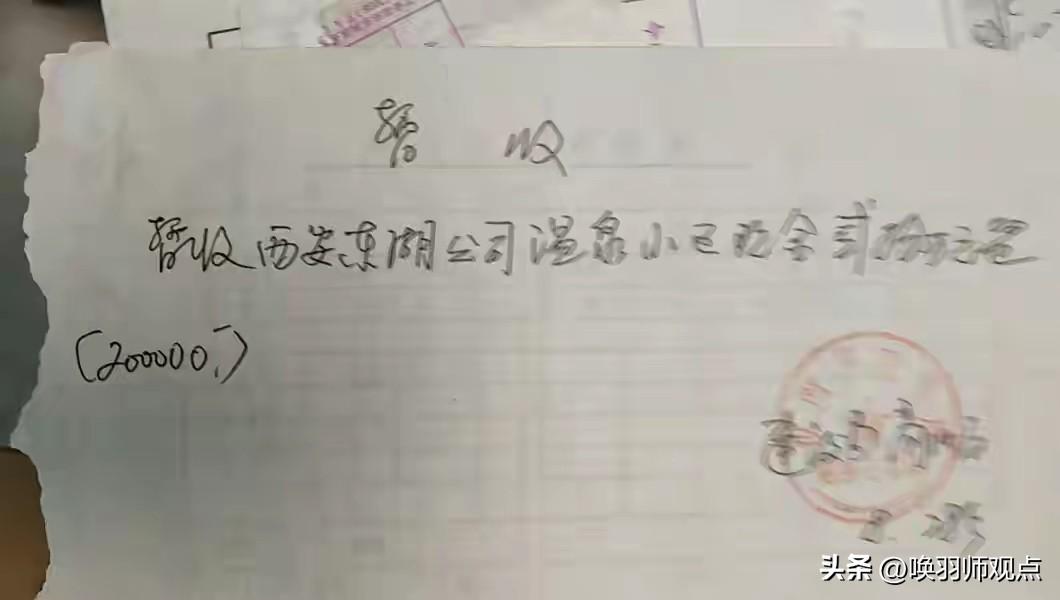 暂 收
暂收西安东湖公司温泉小区现金贰拾万元
(200000,-)
头条 @唤羽师观点